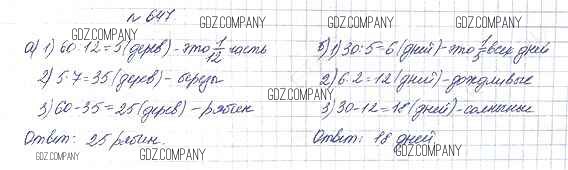 № 647
а) 1) 60:12=5 (дерев) - это 1/12 часть
2) 5·7=35 (дерев) - березы
3) 60-35=25 (дерев) - рябин
Ответ: 25 рябин.
б) 1) 30:5=6 (дней) - это 1/5 всех дней
2) 6·2=12 (дней) - дождливые
3) 30-12=18 (дней) - солнечные
Ответ: 18 дней
GDZ.COMPANY
GDZ.COMPANY
GDZ.COMPANY
GDZ.COMPANY
GDZ.COMPANY
GDZ.COMPANY
GDZ.COMPANY